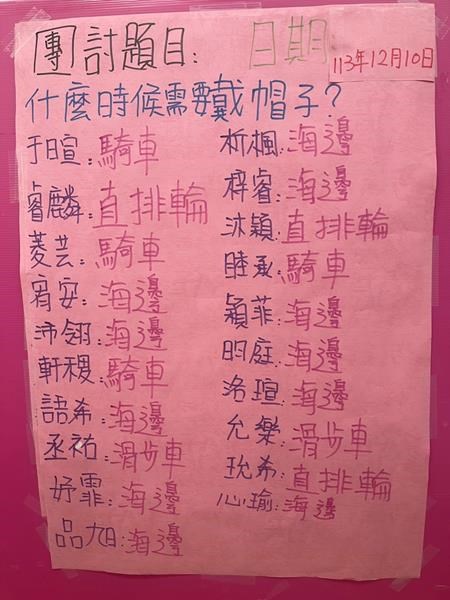 團討題目: 日期 113年12月10日
什麼時候需要戴帽子?
于暄:騎車
睿麟:直排輪
菱芸:騎車
宥安:海邊
沛翎:海邊
軒稷:騎車
語希:海邊
丞祐:滑步車
妤霏:海邊
品旭:海邊
析楓:海邊
梓睿:海邊
沐穎:直排輪
睦承:騎車
穎菲:海邊
昀庭:海邊
洛瑄:海邊
允樂:滑步車
玧希:直排輪
心瑜:海邊